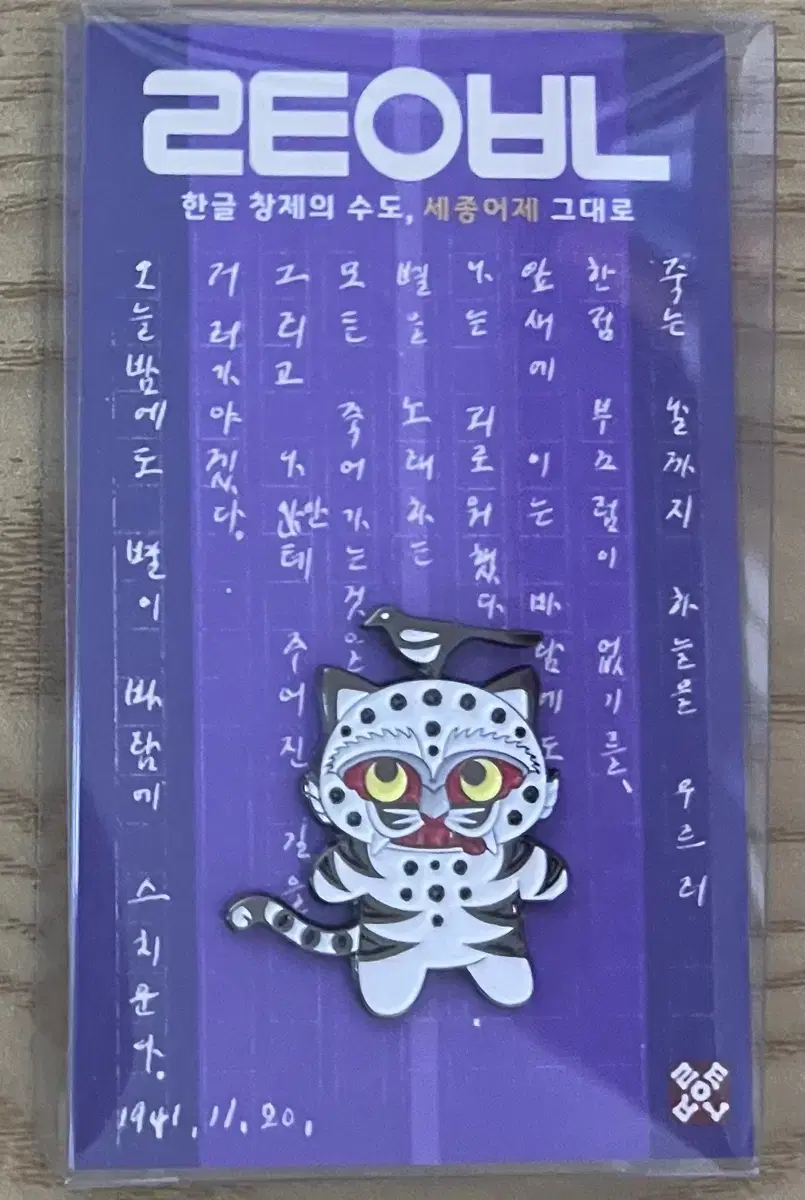 ƧEOㅂL
한글 창제의 수도, 세종어제 그대로
죽는 날까지 하늘을 우르러
한점 부끄럼이 없기를、
잎새에 이는 바람에도
나는 괴로워했다.
별을 노래하는
모든 죽어가는것을
그리고 나안테 주어진 길을
거러가야겠다.
오늘밤에도 별이 바람에 스치운다.
1941.11.20.